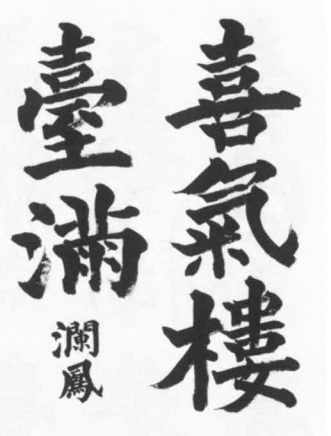 喜氣樓
臺滿
瀾鳳